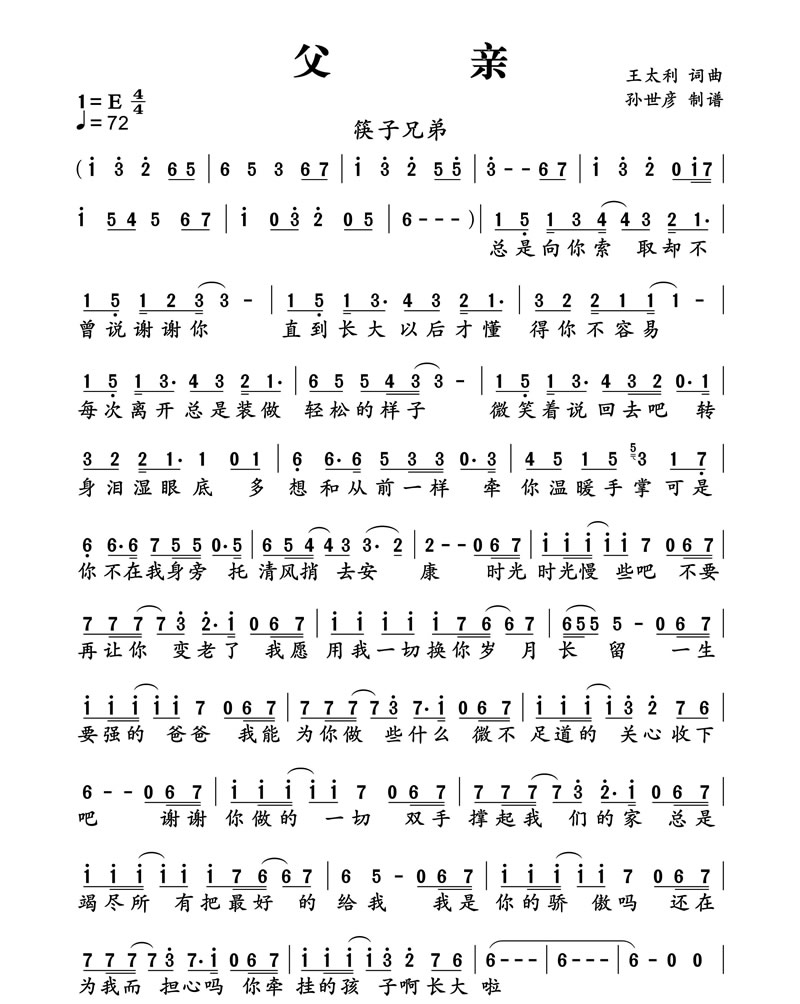 父 亲
王太利 词曲
1=E 4/4
孙世彦 制谱
♩=72
筷子兄弟
(i 3 2 6 5 | 6 5 3 6 7 | i 3 2 5 5 | 3 - - 6 7 | i 3 2 0 i 7 |
i 5 4 5 6 7 | i 0 3 2 0 5 | 6 - - - )| 1 5 1 3 4 4 3 2 1· |
总是向你索 取却不
1 5 1 2 3 3 - | 1 5 1 3· 4 3 2 1· | 3 2 2 1 1 1 - |
曾说谢谢你 直到长大以后才懂 得你不容易
1 5 1 3· 4 3 2 1· | 6 5 5 4 3 3 - | 1 5 1 3· 4 3 2 0· 1 |
每次离开总是装做 轻松的样子 微笑着说回去吧 转
3 2 2 1· 1 0 1 | 6 6· 6 5 3 3 0· 3 | 4 5 1 5 5 3 1 7 |
身泪湿眼底 多 想和从前一样 牵 你温暖手掌可是
6 6· 6 7 5 5 0· 5 | 6 5 4 4 3 3· 2 | 2 - - 0 6 7 | i i i i i 7 0 6 7 |
你不在我身旁 托 清风捎 去安 康 时光时光慢 些吧 不要
7 7 7 7 3 2· i 0 6 7 | i i i i i 7 6 6 7 | 6 5 5 5 - 0 6 7 |
再让你 变老了 我愿 用我一切换你岁 月 长 留 一生
i i i i i 7 0 6 7 | 7 7 7 7 3 7· i 0 6 7 | i i i i 3 2 7 6 |
要强的 爸爸 我能 为你做 些什么 微不 足道的 关心收下
6 - - 0 6 7 | i i i i i 7 0 6 7 | 7 7 7 7 3 2· i 0 6 7 |
吧 谢谢 你做的 一切 双手 撑起我 们的家 总是
i i i i i 7 6 6 7 | 6 5 - 0 6 7 | i i i i i 7 0 6 7 |
竭尽所 有把最好 的 给我 我是 你的骄 傲吗 还在
7 7 7 7 3 7· i 0 6 7 | i i i i 3 2 7 6 | 6 - - - | 6 - - - | 6 - 0 0 |
为我而 担心吗 你牵 挂的孩 子啊长大 啦